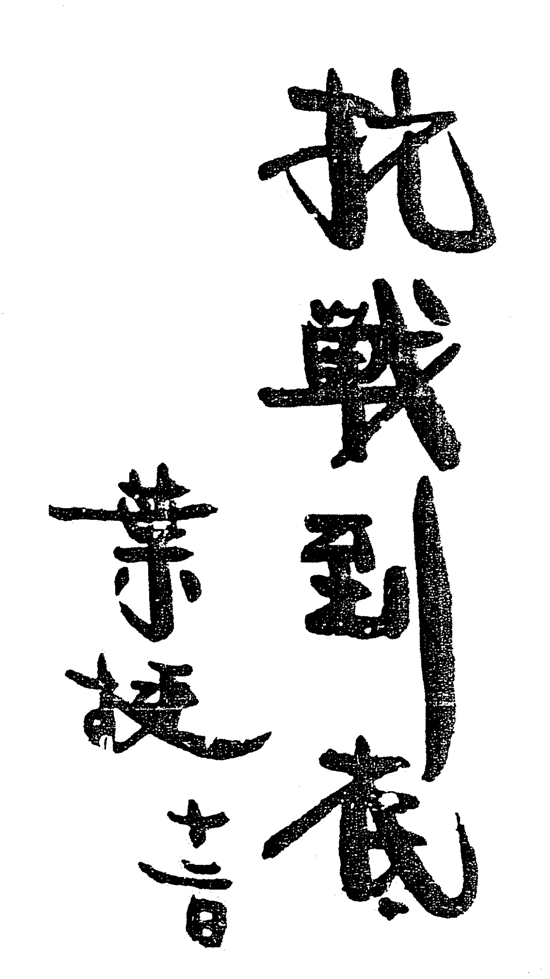 抗戰到底
葉挺
十二日